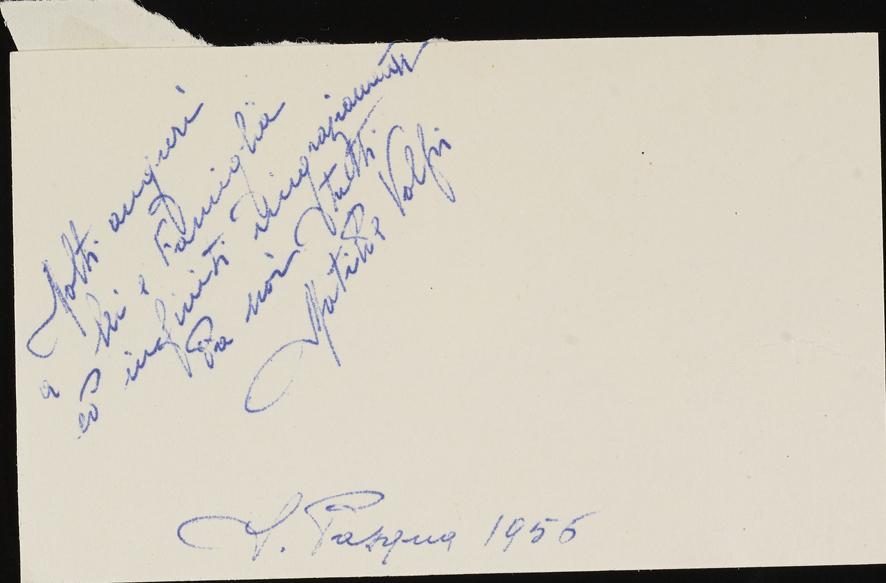 Molti auguri
a Lei e Famiglia
ed infiniti ringraziamenti
da noi tutti
Matilde Volpi
S. Pasqua 1956